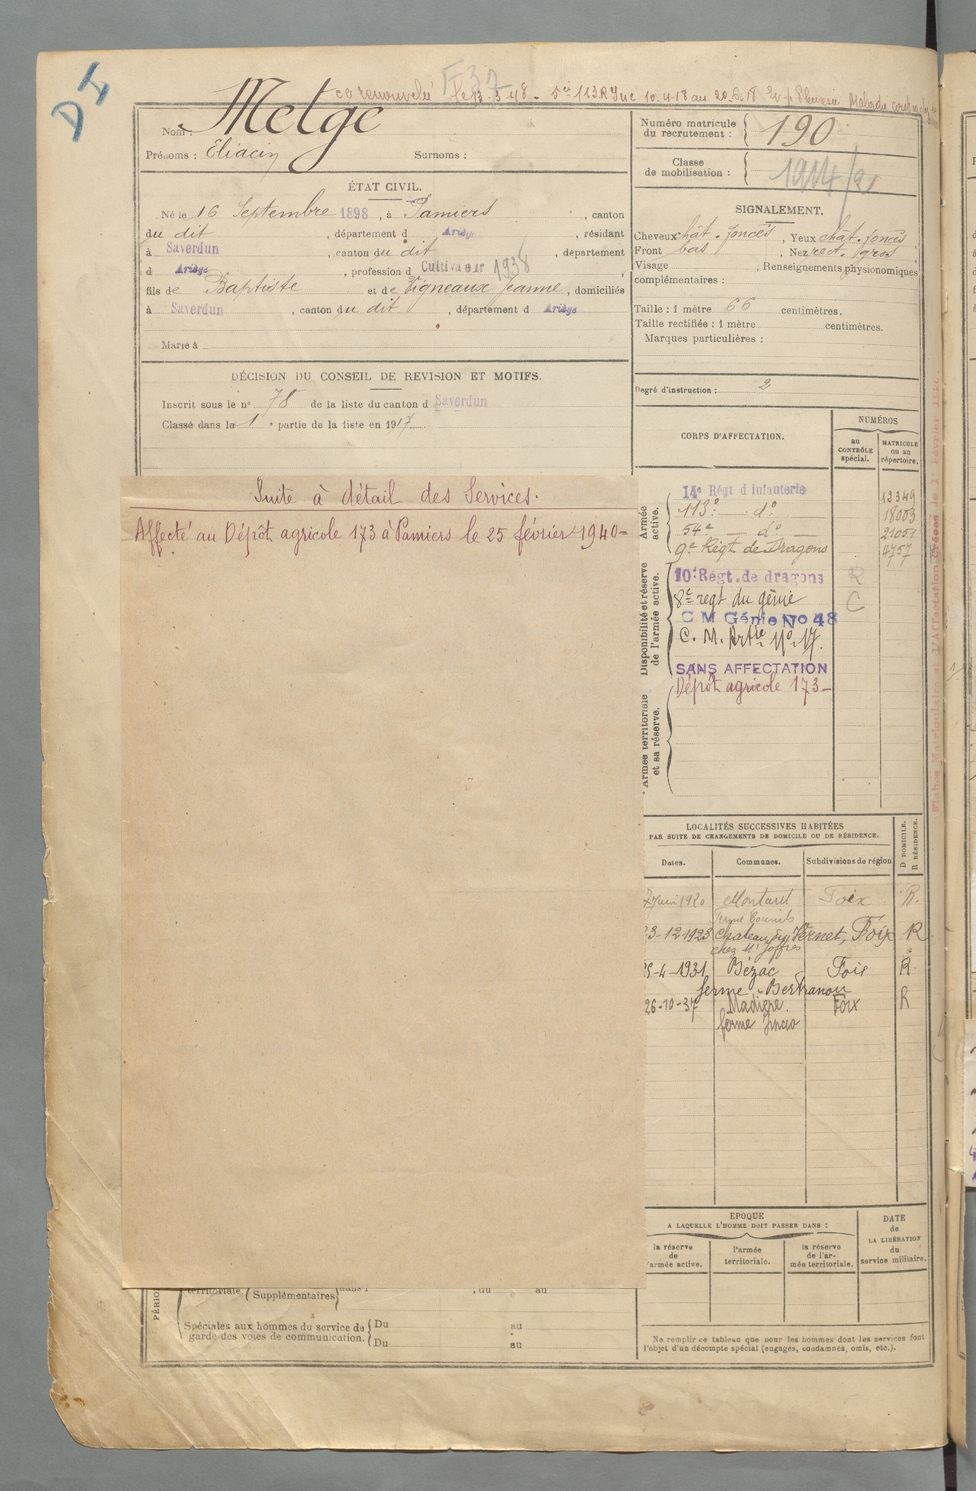 DI
F 37
ce renouvelé le 13-3-48 - 5e 113 R Inf 10.4.18 au 20.6.18 Ev.
Nom : Metge
Prénoms : Eliacin Surnoms :
ÉTAT CIVIL.
Né le 16 Septembre 1898, à Pamiers, canton
du dit, département d Ariège, résidant
à Saverdun, canton du dit, département
d Ariège, profession d Cultivateur 1938,
fils de Baptiste et de Vigneaux Jeanne, domiciliés
à Saverdun, canton du dit, département d Ariège
Marié à
DÉCISION DU CONSEIL DE REVISION ET MOTIFS.
Inscrit sous le n° 78 de la liste du canton d Saverdun
Classé dans la 1e partie de la liste en 1917.
Suite à détail des Services.
Affecté au Dépôt agricole 173 à Pamiers le 25 février 1940-
Numéro matricule
du recrutement : 190
Classe
de mobilisation : 1914/21
SIGNALEMENT.
Cheveux chât. foncés, Yeux chât. foncés
Front bas, Nez rect. gros
Visage, Renseignements physionomiques
complémentaires :
Taille : 1 mètre 66 centimètres.
Taille rectifiée : 1 mètre centimètres.
Marques particulières :
Degré d'instruction : 2
CORPS D'AFFECTATION.
NUMÉROS
au CONTRÔLE spécial.
MATRICULE ou au répertoire.
Armée active.
14e Régt d'infanterie 12349
113e d° 18003
54e d° 21051
9e Régt de Dragons 4757
Disponibilité et réserve de l'armée active.
10e Régt. de dragons R
8e regt du génie C
C M Génie No 48
C. M. Artie No. 17.
SANS AFFECTATION
Dépôt agricole 173-
Armée territoriale et sa réserve.
LOCALITÉS SUCCESSIVES HABITÉES
PAR SUITE DE CHANGEMENTS DE DOMICILE OU DE RÉSIDENCE.
Dates. Communes. Subdivisions de région D DOMICILE. R RÉSIDENCE.
7 Juin 1920 Montaut Foix R.
3-12-1923 Chateau du Vernet, Foix R
chez Mr Joffres
5-4-1931 Bézac Foix R
ferme Bertranou
26-10-37 Madière Foix R
ferme
EPOQUE
A LAQUELLE L'HOMME DOIT PASSER DANS :
la réserve de l'armée active.
l'armée territoriale.
la réserve de l'armée territoriale.
DATE de LA LIBÉRATION du service militaire.
territoriale. Supplémentaires dans : , du au
Spéciales aux hommes du service de Du au
garde des voies de communication. Du au
Ne remplir ce tableau que pour les hommes dont les services font
l'objet d'un décompte spécial (engagés, condamnés, omis, etc.).